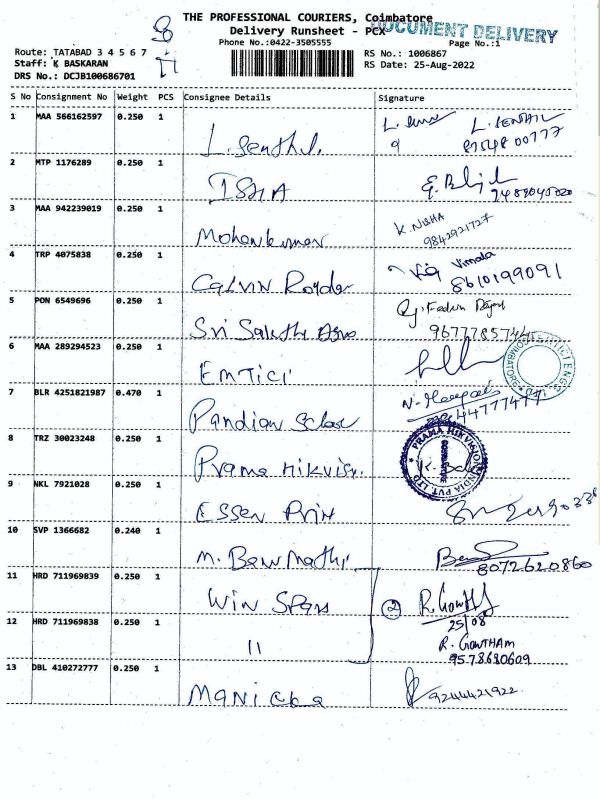 THE PROFESSIONAL COURIERS, Coimbatore
Delivery Runsheet - PCX
DOCUMENT DELIVERY
Phone No.:0422-3505555
Page No.:1
Route: TATABAD 3 4 5 6 7
RS No.: 1006867
Staff: K BASKARAN
RS Date: 25-Aug-2022
DRS No.: DCJB100686701
S No Consignment No Weight PCS Consignee Details Signature
1 MAA 566162597 0.250 1 L. Senthil. L. SENTHIL
87548 00777
2 MTP 1176289 0.250 1 ISHA
3 MAA 942239019 0.250 1 Mohankumar K. NISHA
9842921727
4 TRP 4075838 0.250 1 CALVIN Royder Vimala
8610199091
5 PON 6549696 0.250 1 Sri Sakthi
6 MAA 289294523 0.250 1 EMTICI
7 BLR 4251821987 0.470 1 Pandian
8 TRZ 30023248 0.250 1 Prama Hikvision
PRAMA HIKVISION INDIA PVT LTD
9 NKL 7921028 0.250 1 ESSEN Print
10 SVP 1366682 0.240 1 M. Banumathi
8072620860
11 HRD 711969839 0.250 1 Win Spars 2 R. Gowth
25/08
12 HRD 711969838 0.250 1 11 R. GOWTHAM
9578680609
13 DBL 410272777 0.250 1 Manicka 9244421922